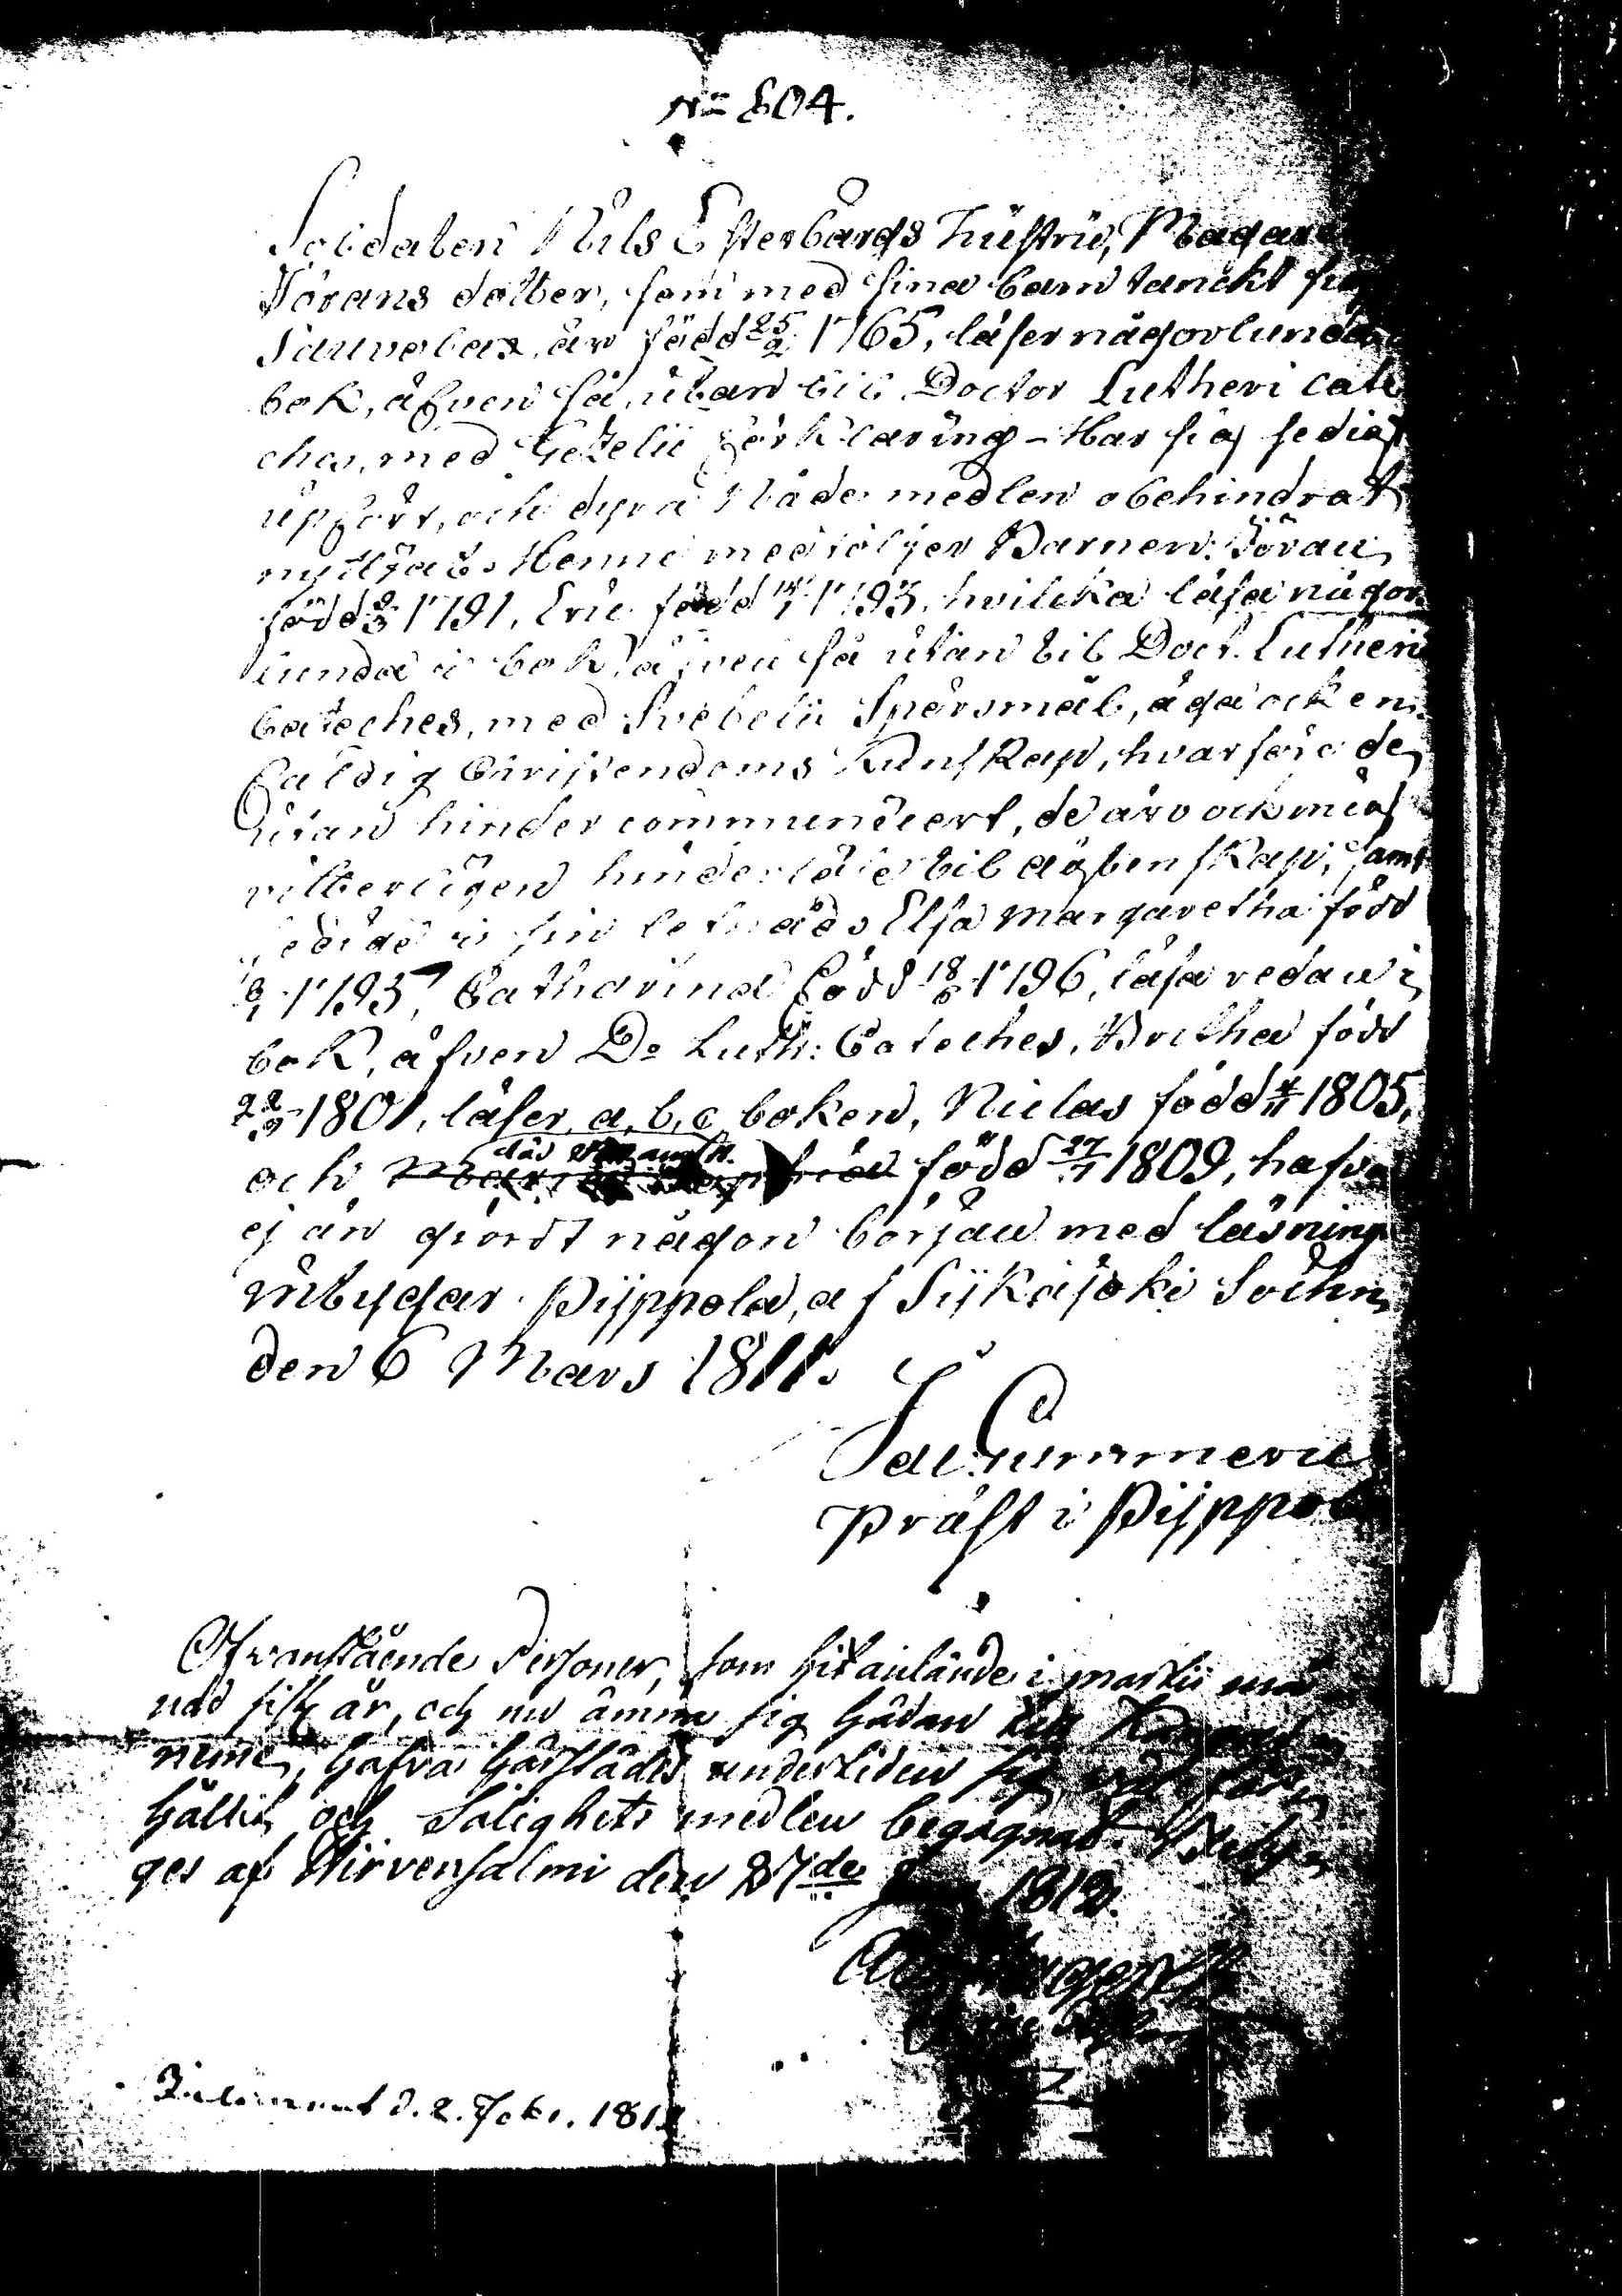 No 804.
Soldaten Nils Esterbärgs hustru, Magar
Jörans dotter, som med sina barn tänckt
Saurolax, är född 25/2 1765, läser någorlunda
bok, äfven så utan til Doctor Lutheri Cate
ches, med Gezelii förklaring - Har sig sedig
upfört, och dyra Nåde medlen obehindrat
nyttjat. Henne medföljer Barnen: Jöran
född 1791, Eric född 14/1 1793, hvilcka läsa någor
lunda i bok, äfven så utan til Doct. Lutheri
Cateches, med Svebelii Spörsmål, äga ock en
faldig Christendoms Kunskap, hvarföre de
utan hinder communicert, de äro ock mig
vitterligen hinderlöse til ägtenskap, samt
i sin lefnad, Elsa Margaretha född
1795, Catharina född 18/6 1796, läsa redan i
bok, äfven Do Luth: Cateches, Britha född
22/9 1801, läser a, b, c boken, Niclas född 4/11 1805,
och född 27/7 1809, hafva
ej än giordt någon början med läsning
intygar Pijppola, af Sijkajoki Sochn
den 6 Mars 1811.
Präst i Pijppol
Ofvanstående Personer, som hit anlände i martii må
nad sistl. år, och nu ämna sig hädan til
hafva härstädes undertiden sig väl för
hållit, och Salighets medlen begagnat. Bety
ges af Hirvensalmi den 27de 1812.
d. 2. Febr. 1812